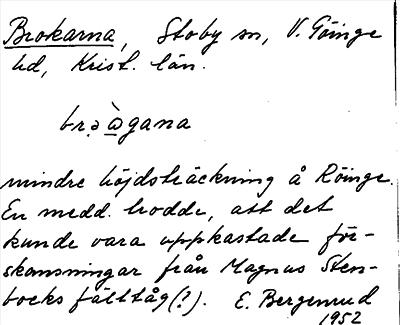 Brokarna, Stoby sn, V. Göinge
hd, Krist. län.
brə̀ɷ̀gana
mindre höjdsträckning å Röinge.
En medd. trodde, att det
kunde vara uppkastade för-
skansningar från Magnus Sten-
bocks fälttåg(?). E. Bergenrud
1952